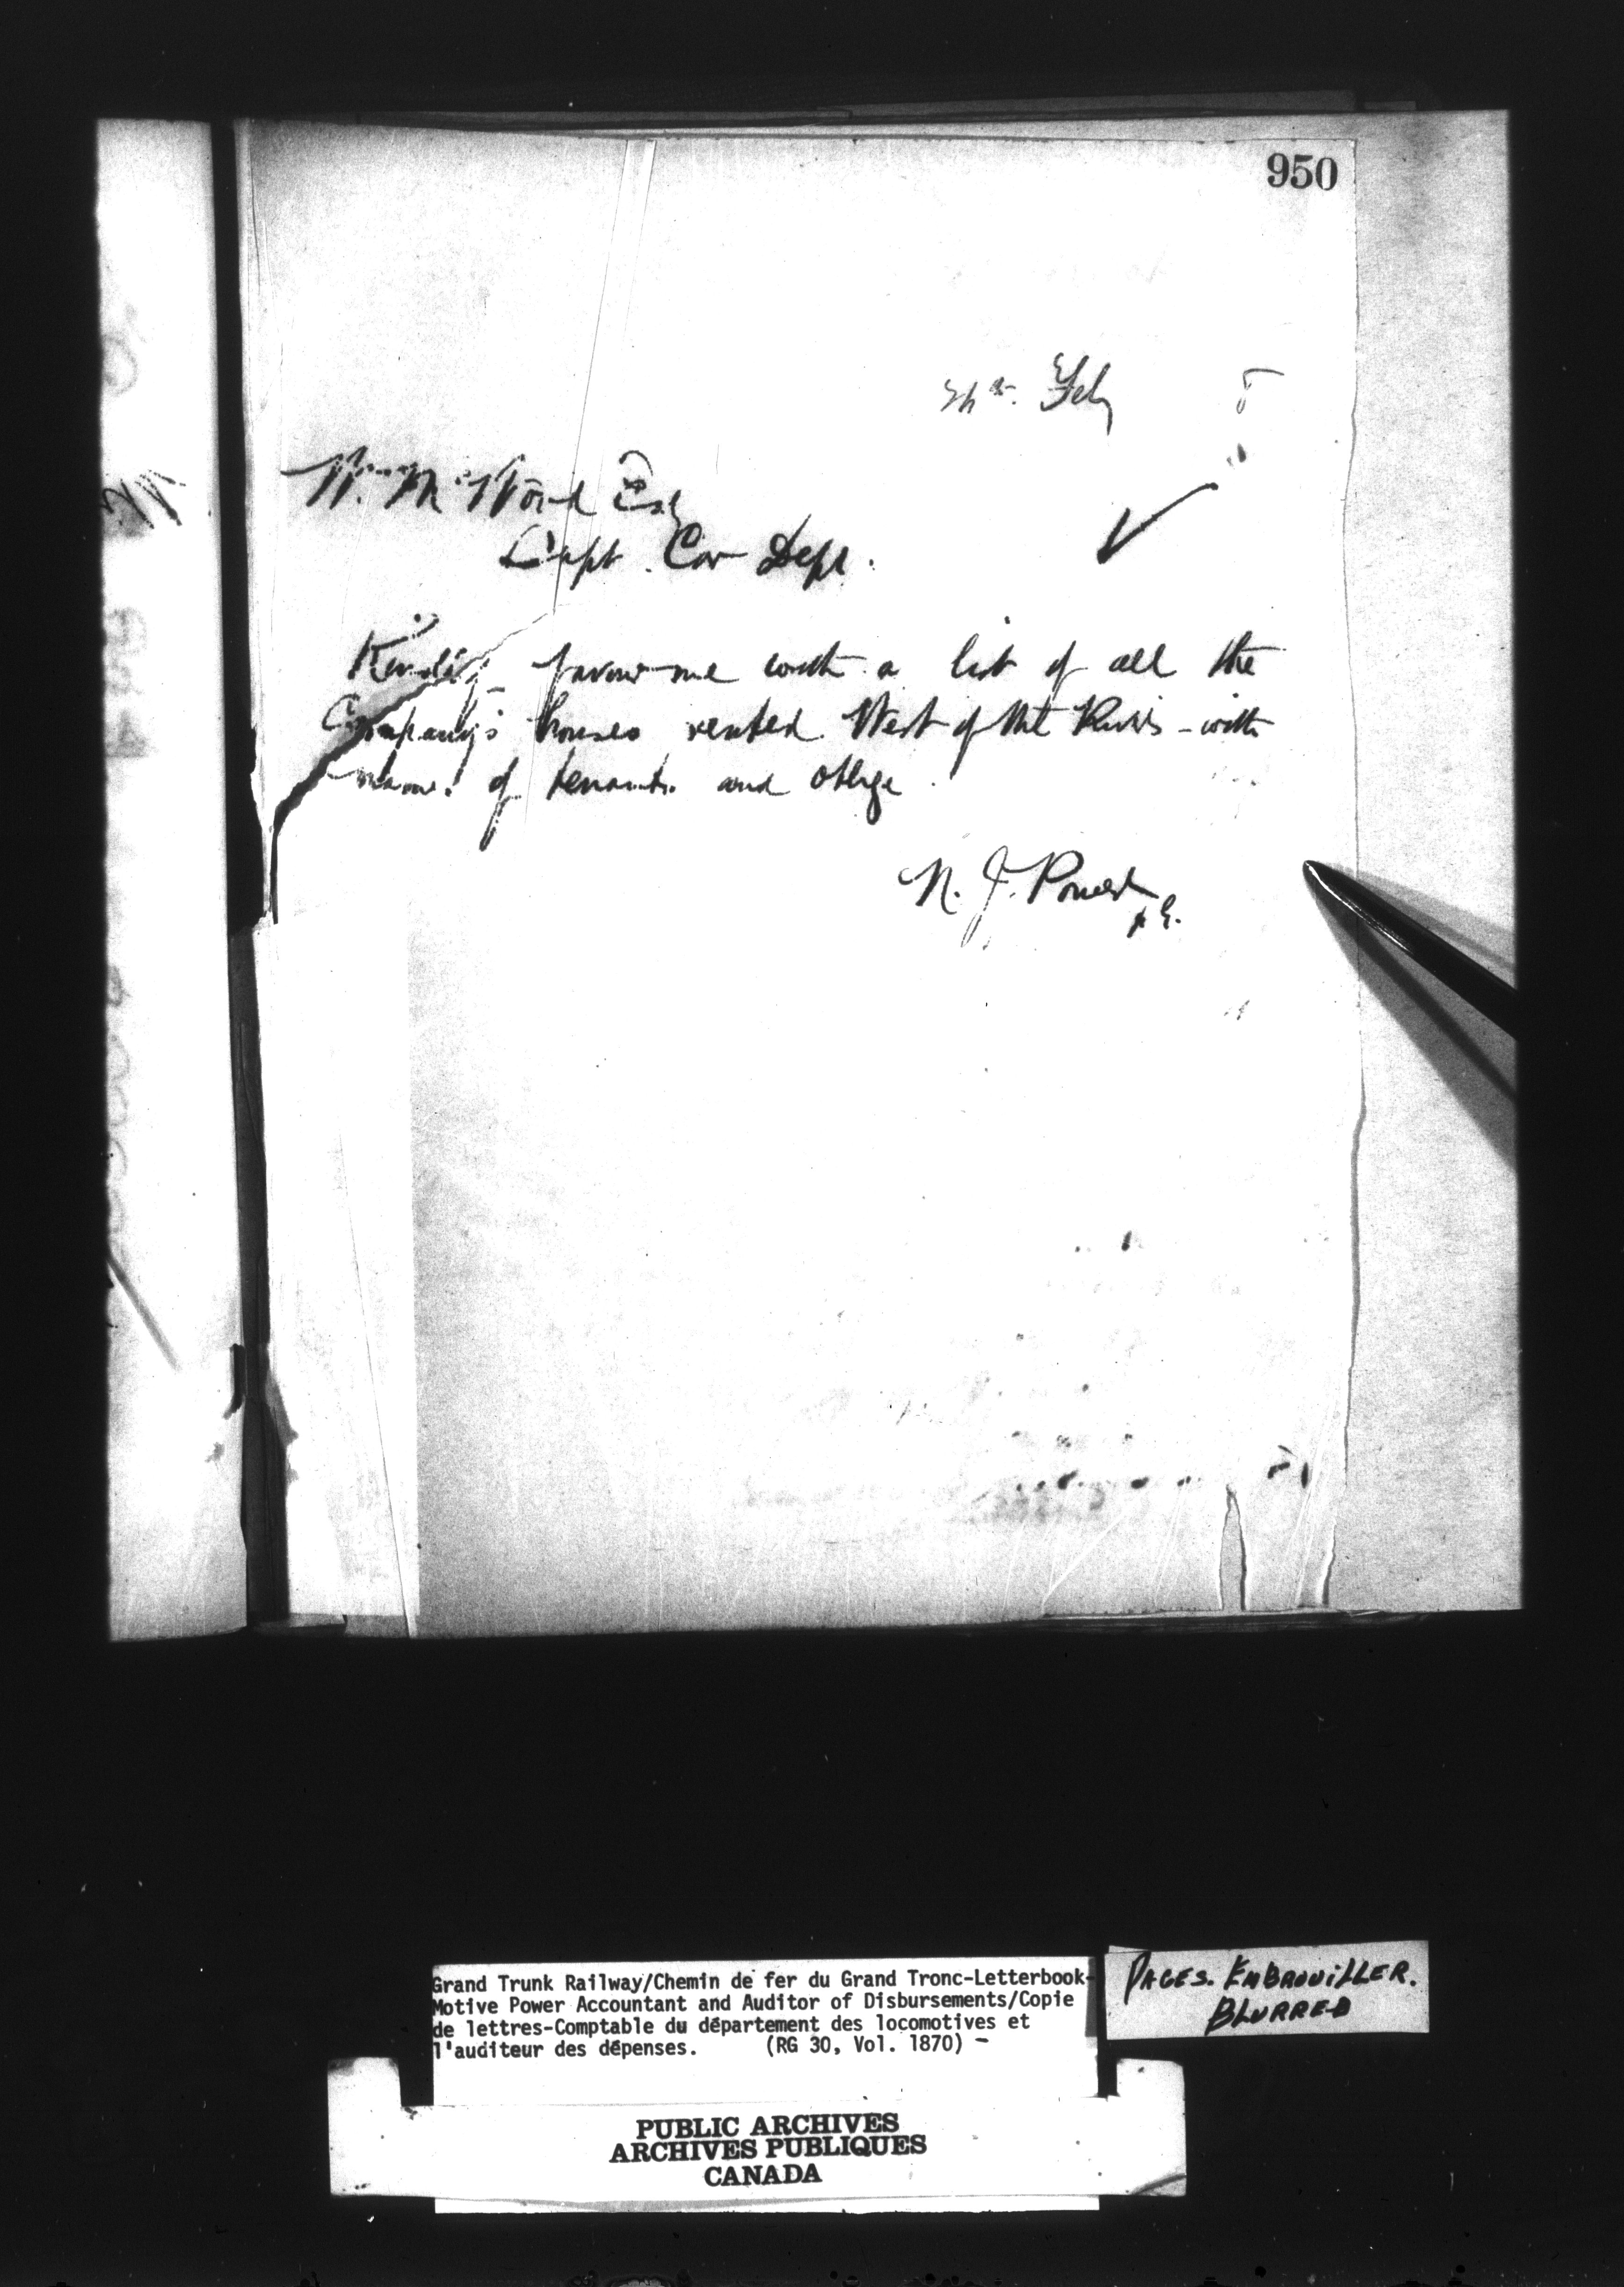 950
Feby
W. McWood Esq
Supt. Car Dept.
Kindly favour me with a list of all the
Company's houses rented West of the River - with
name of tenants and oblige
N. J. Power
Grand Trunk Railway/Chemin de fer du Grand Tronc-Letterbook-
Motive Power Accountant and Auditor of Disbursements/Copie
de lettres-Comptable du département des locomotives et
l'auditeur des dépenses. (RG 30, Vol. 1870) -
PAGES. EMBROUILLER.
BLURRED
PUBLIC ARCHIVES
ARCHIVES PUBLIQUES
CANADA